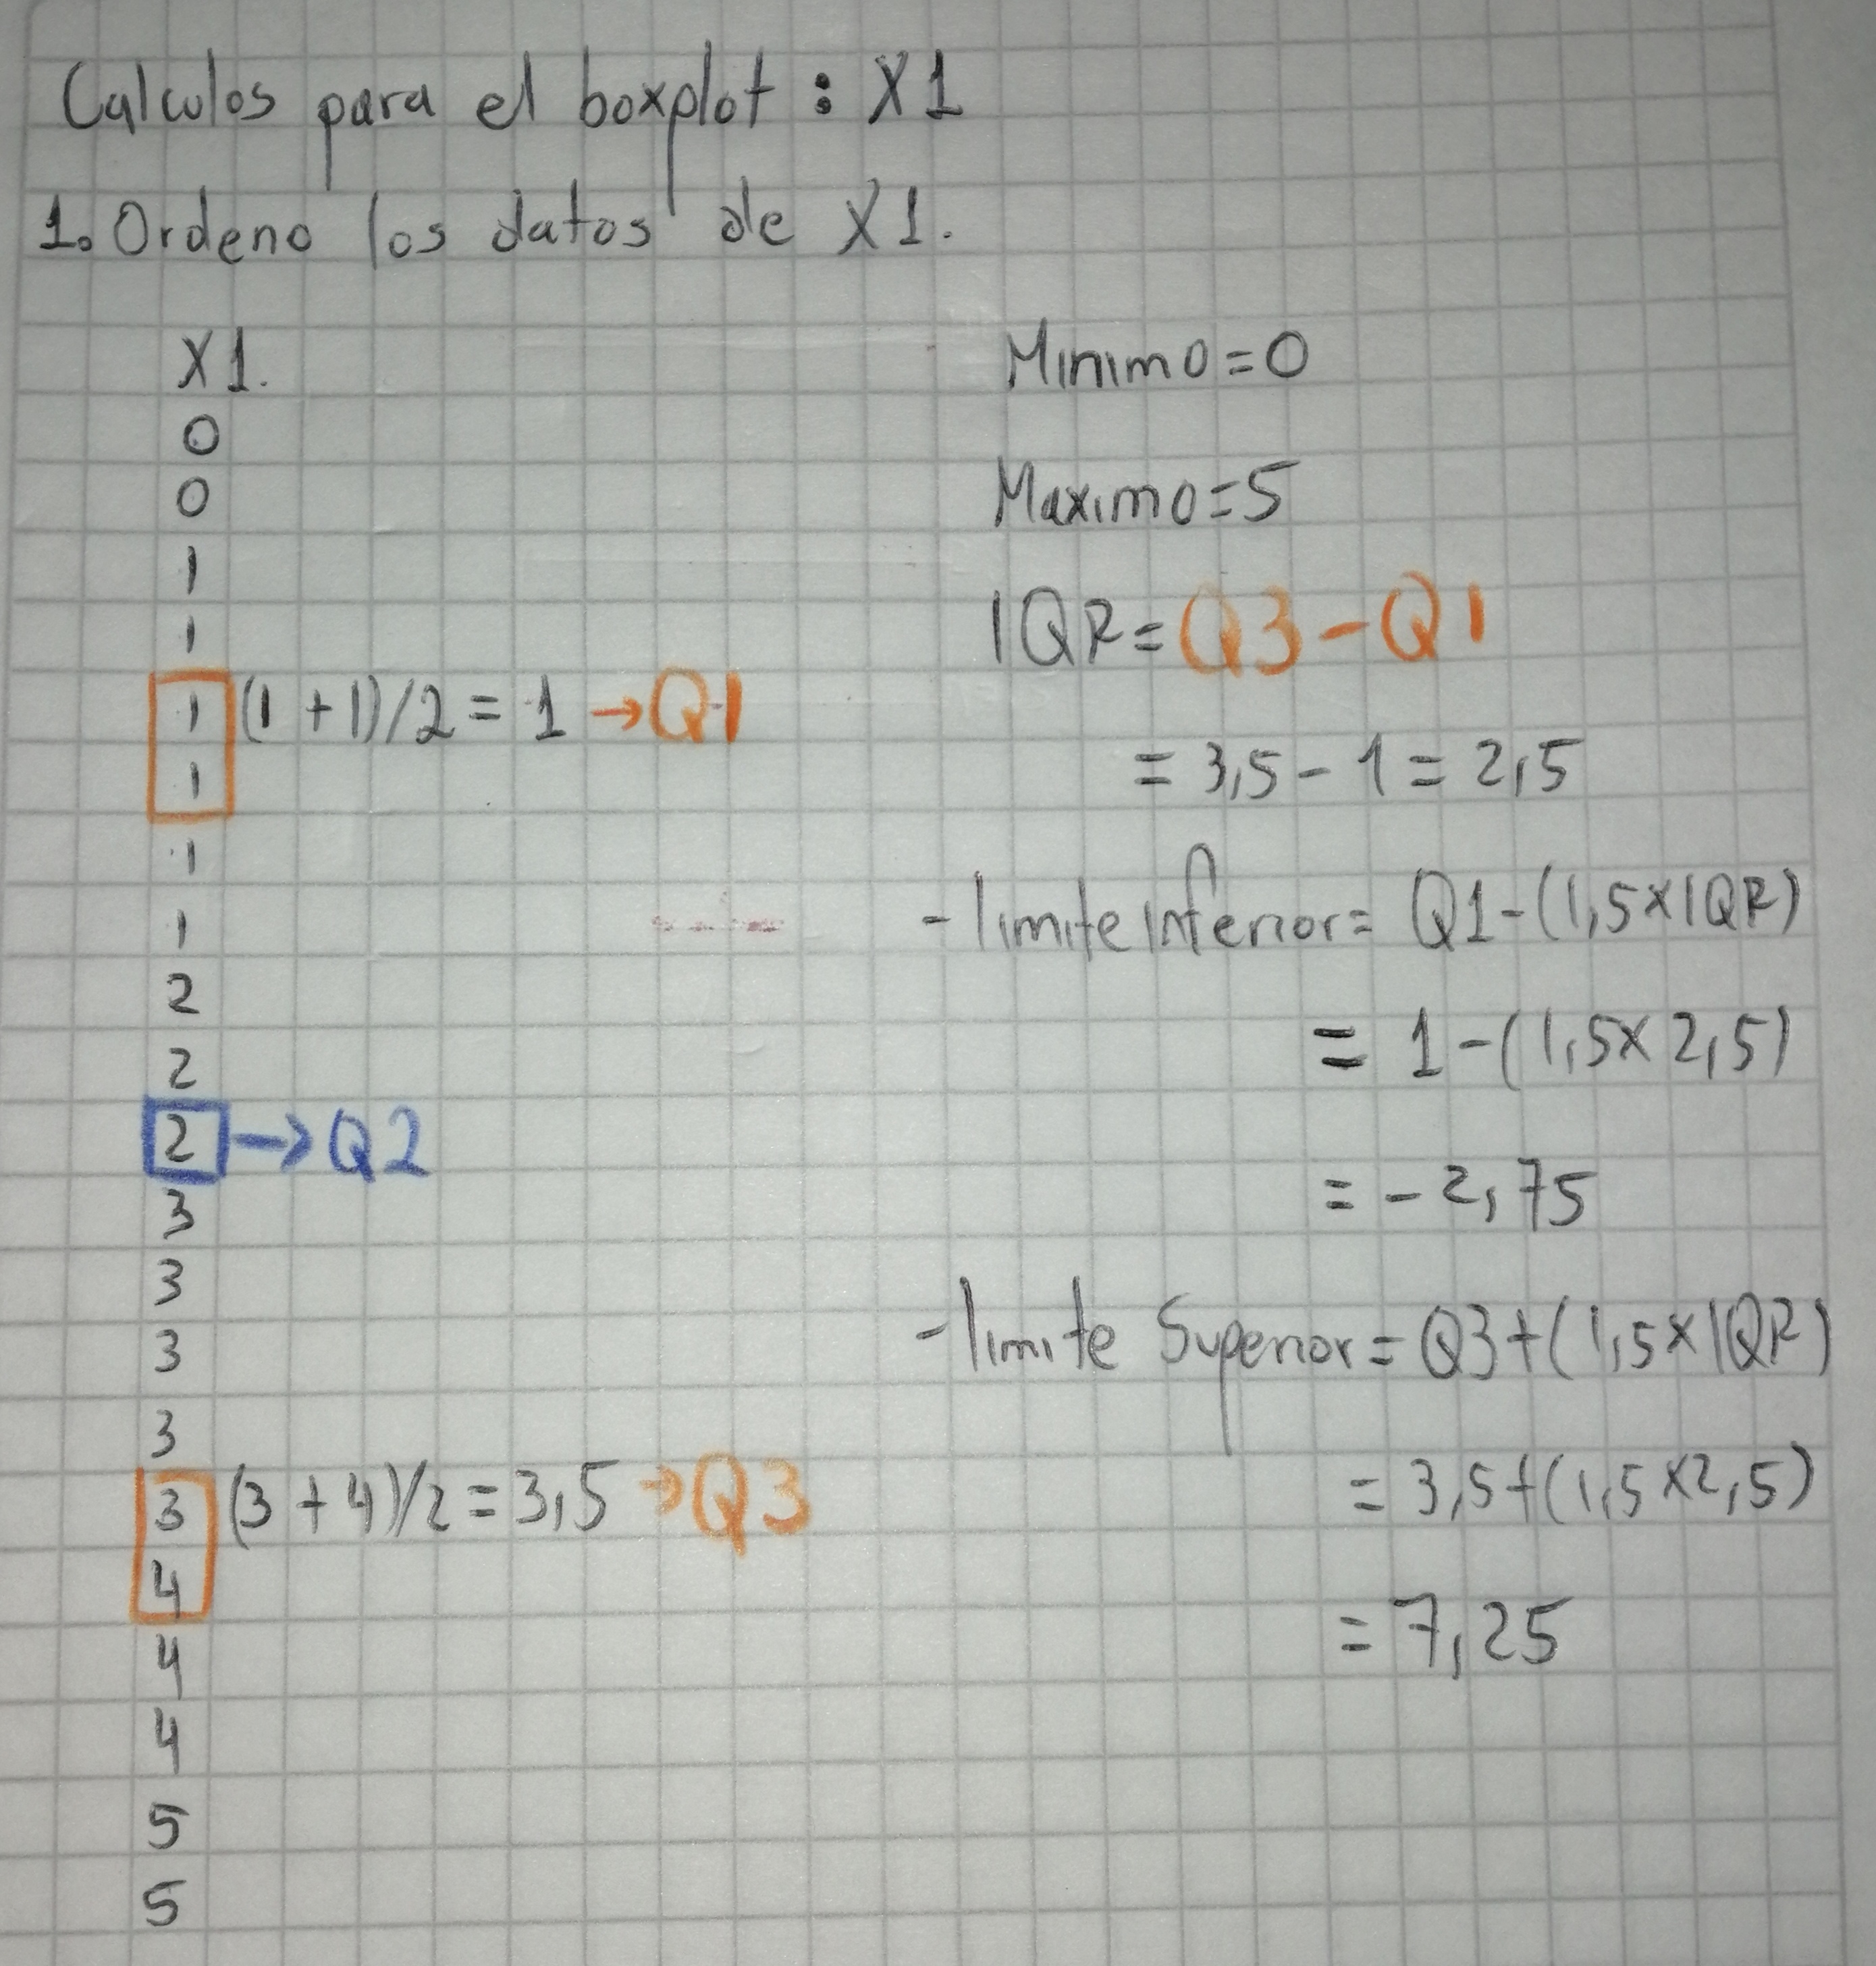 Calculos para el boxplot : X1
1. Ordeno los datos de X1.
X1.
0
0
1
1
1 (1 + 1)/2 = 1 → Q1
1
1
1
2
2
2 → Q2
3
3
3
3
3 (3 + 4)/2 = 3,5 → Q3
4
4
4
5
5
Minimo = 0
Maximo = 5
IQR = Q3 - Q1
= 3,5 - 1 = 2,5
- limite inferior = Q1 - (1,5 x IQR)
= 1 - (1,5 x 2,5)
= - 2,75
- limite Superior = Q3 + (1,5 x IQR)
= 3,5 + (1,5 x 2,5)
= 7,25